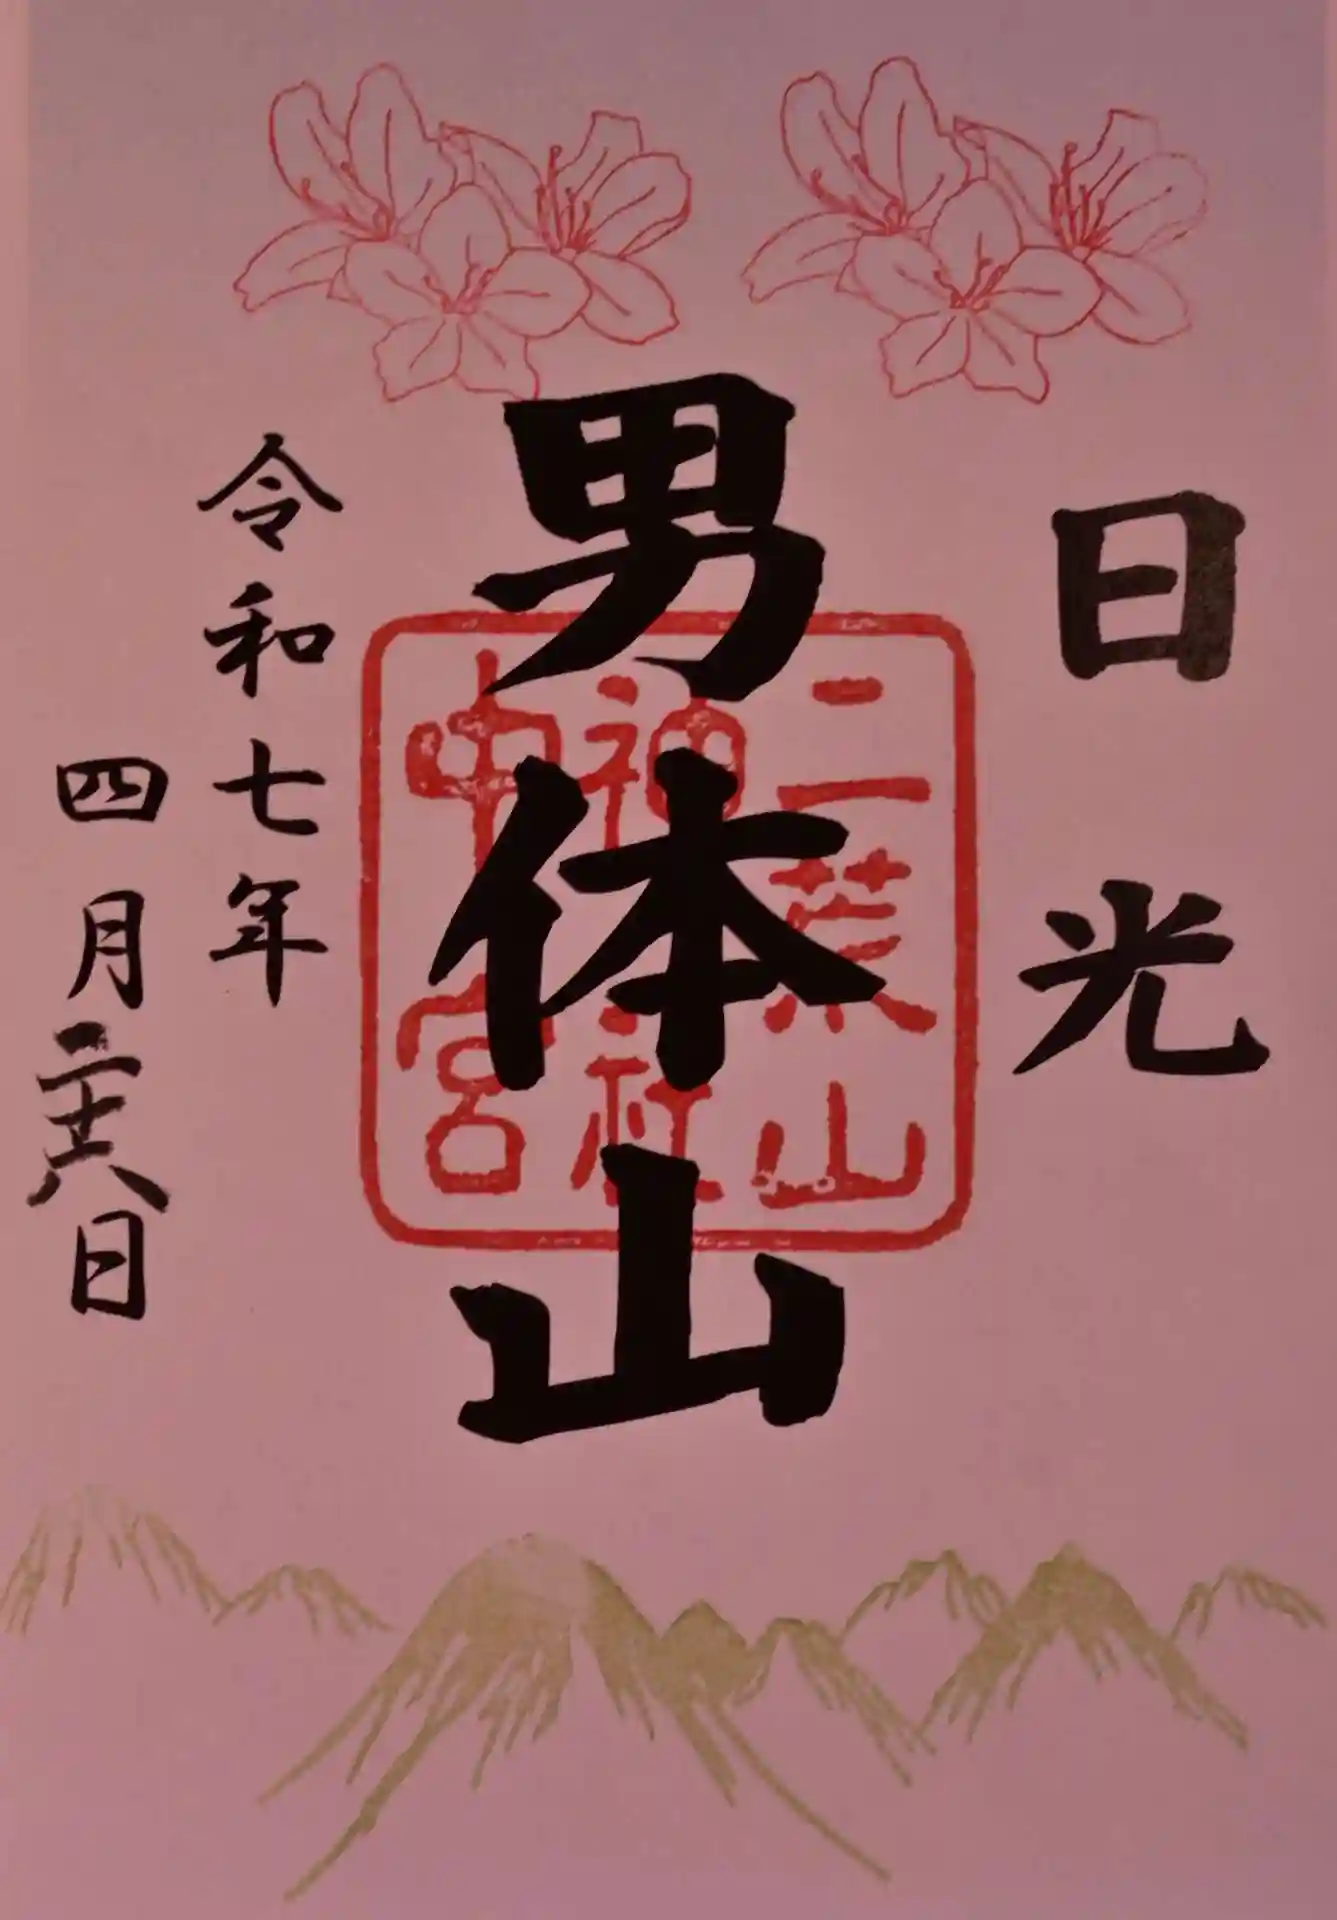 日光
男体山
二荒山
神社
中宮
令和七年
四月二十八日